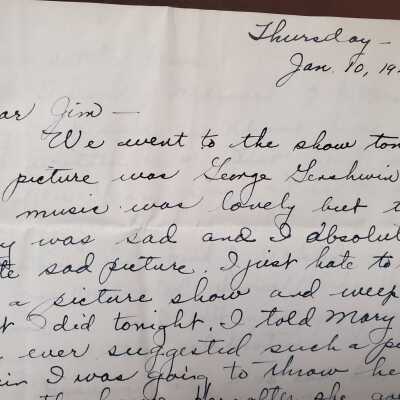 Thursday -
Jan. 10, 19
ar Jim -
We went to the show ton
picture was George Gershwin
music was lovely but t
y was sad and I absolut
te sad picture. I just hate to
a picture show and weep
t I did tonight. I told Mary
ever suggested such a p
in I was going to throw he
the house. her after she